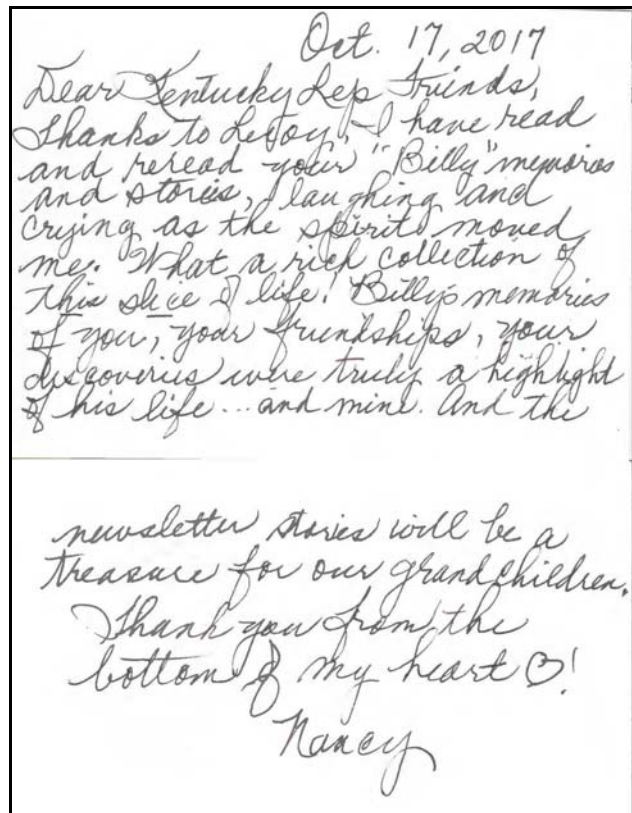 Oct. 17, 2017
Dear Kentucky Lep Friends,
Thanks to Leroy, I have read
and reread your "Billy" memories
and stories, laughing and
crying as the spirit moved
me. What a rich collection of
this slice of life! Billy's memories
of you, your friendships, your
discoveries were truly a highlight
of his life... and mine. And the
newsletter stories will be a
treasure for our grandchildren.
Thank you from the
bottom of my heart ♡!
Nancy